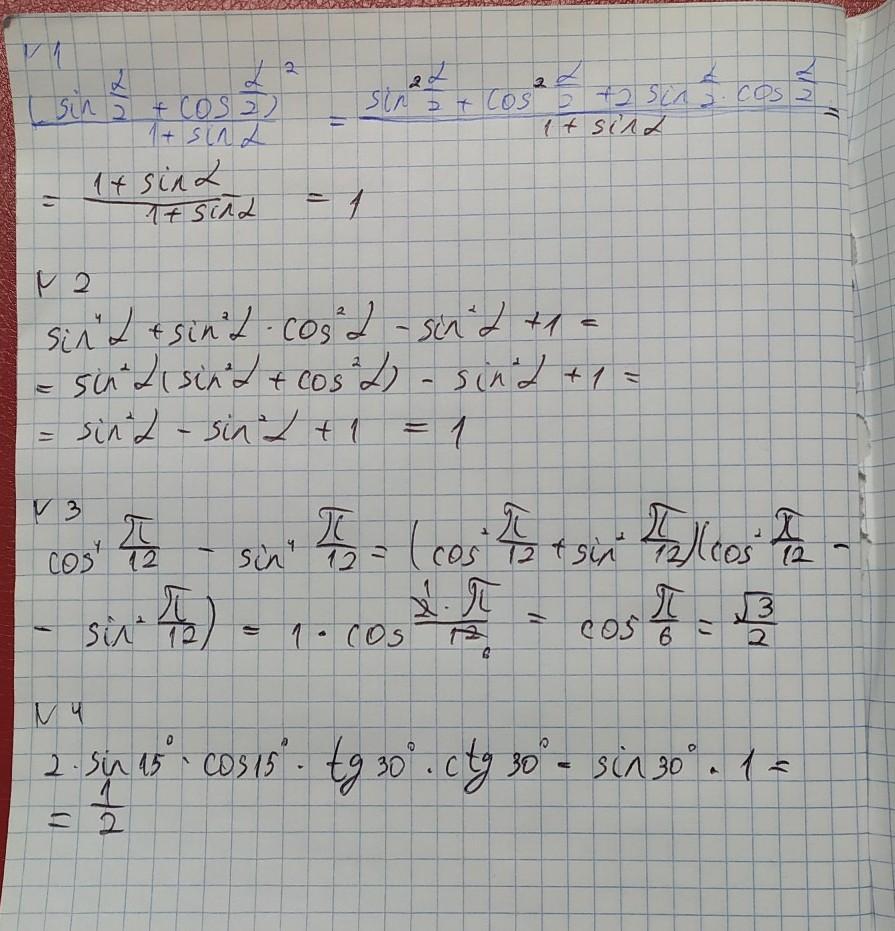 N 1
(sin α/2 + cos α/2)² / 1 + sin α = sin² α/2 + cos² α/2 + 2 sin α/2 · cos α/2 / 1 + sin α =
= 1 + sin α / 1 + sin α = 1
N 2
sin⁴α + sin²α · cos²α - sin²α + 1 =
= sin²α (sin²α + cos²α) - sin²α + 1 =
= sin²α - sin²α + 1 = 1
N 3
cos⁴ π/12 - sin⁴ π/12 = (cos² π/12 + sin² π/12)(cos² π/12 -
- sin² π/12) = 1 · cos 2 · π/12 = cos π/6 = √3/2
N 4
2 · sin 15° · cos 15° · tg 30° · ctg 30° = sin 30° · 1 =
= 1/2